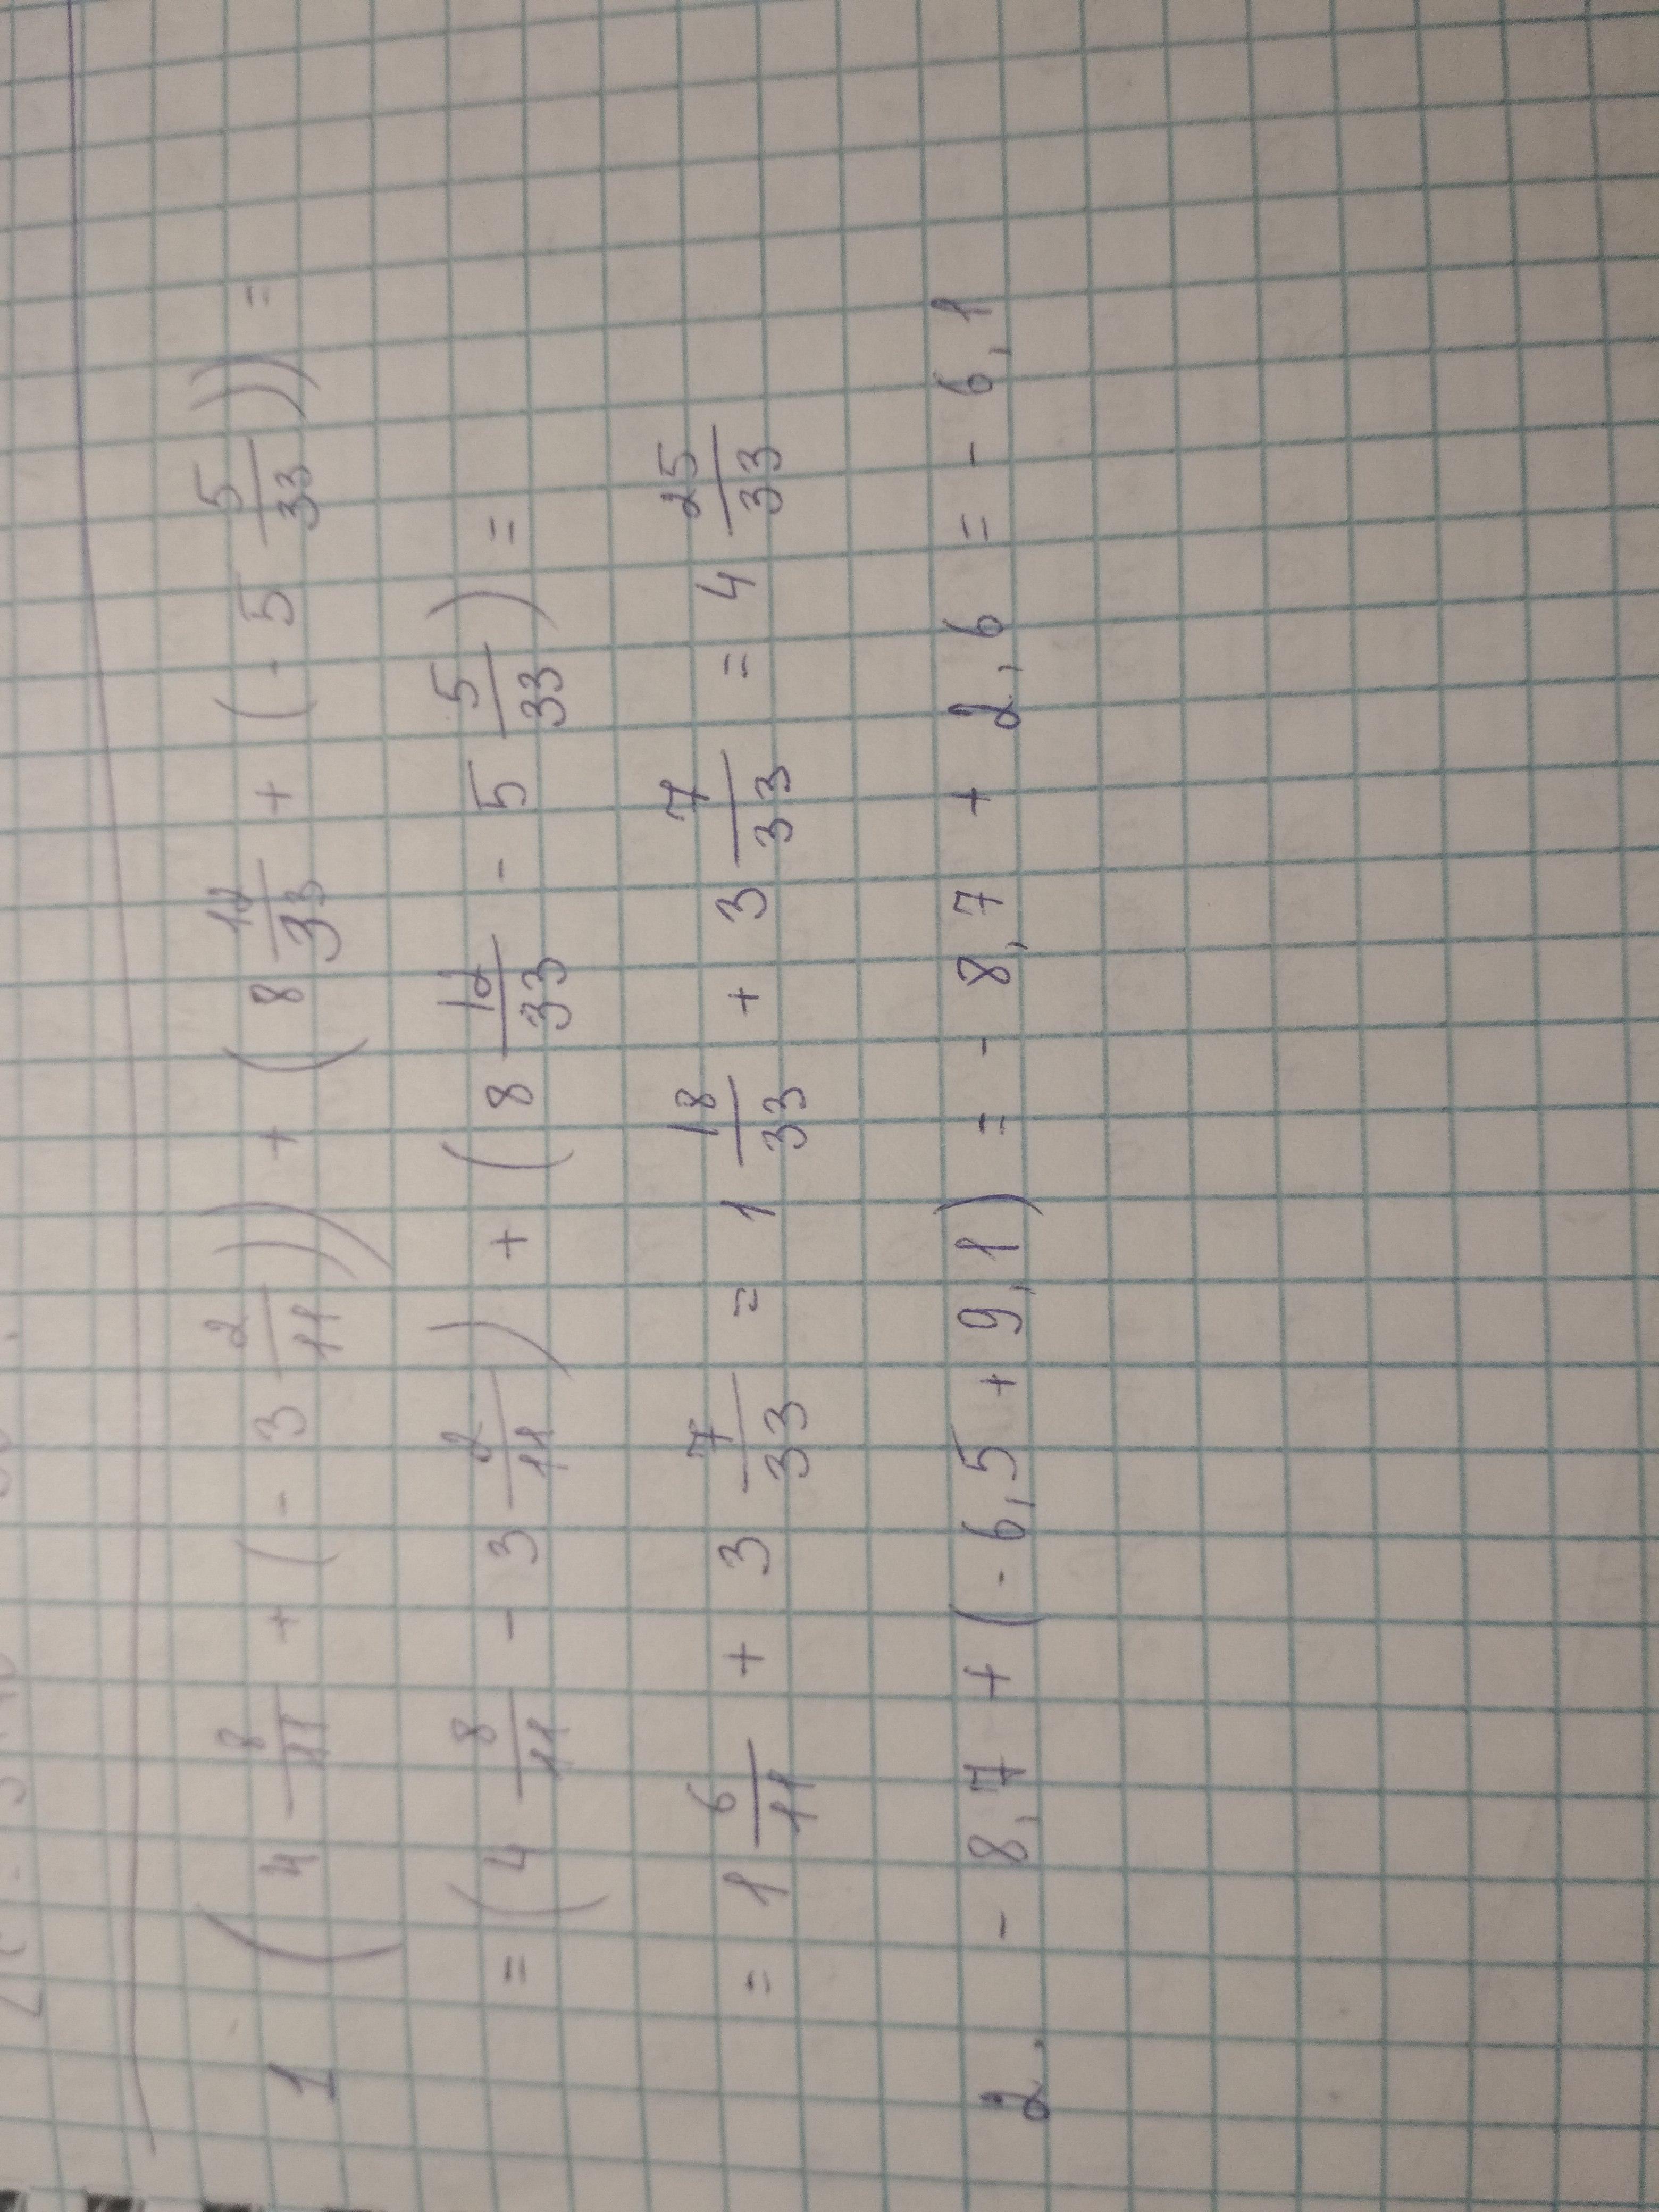 1 (4 8/11 + (- 3 2/11)) + (8 12/33 + (- 5 5/33)) =
= (4 8/11 - 3 2/11) + (8 12/33 - 5 5/33) =
= 1 6/11 + 3 7/33 = 1 18/33 + 3 7/33 = 4 25/33
2. - 8,7 + (- 6,5 + 9,1) = - 8,7 + 2,6 = - 6,1